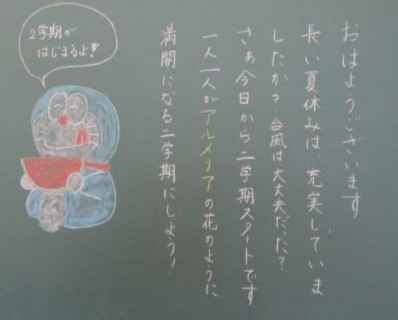 おはようございます
長い夏休みは、充実していま
したか？台風は大丈夫だった？
さぁ今日から二学期スタートです
一人一人がアルメリアの花のように、
満開になる二学期にしよう！
2学期が
はじまるよ！